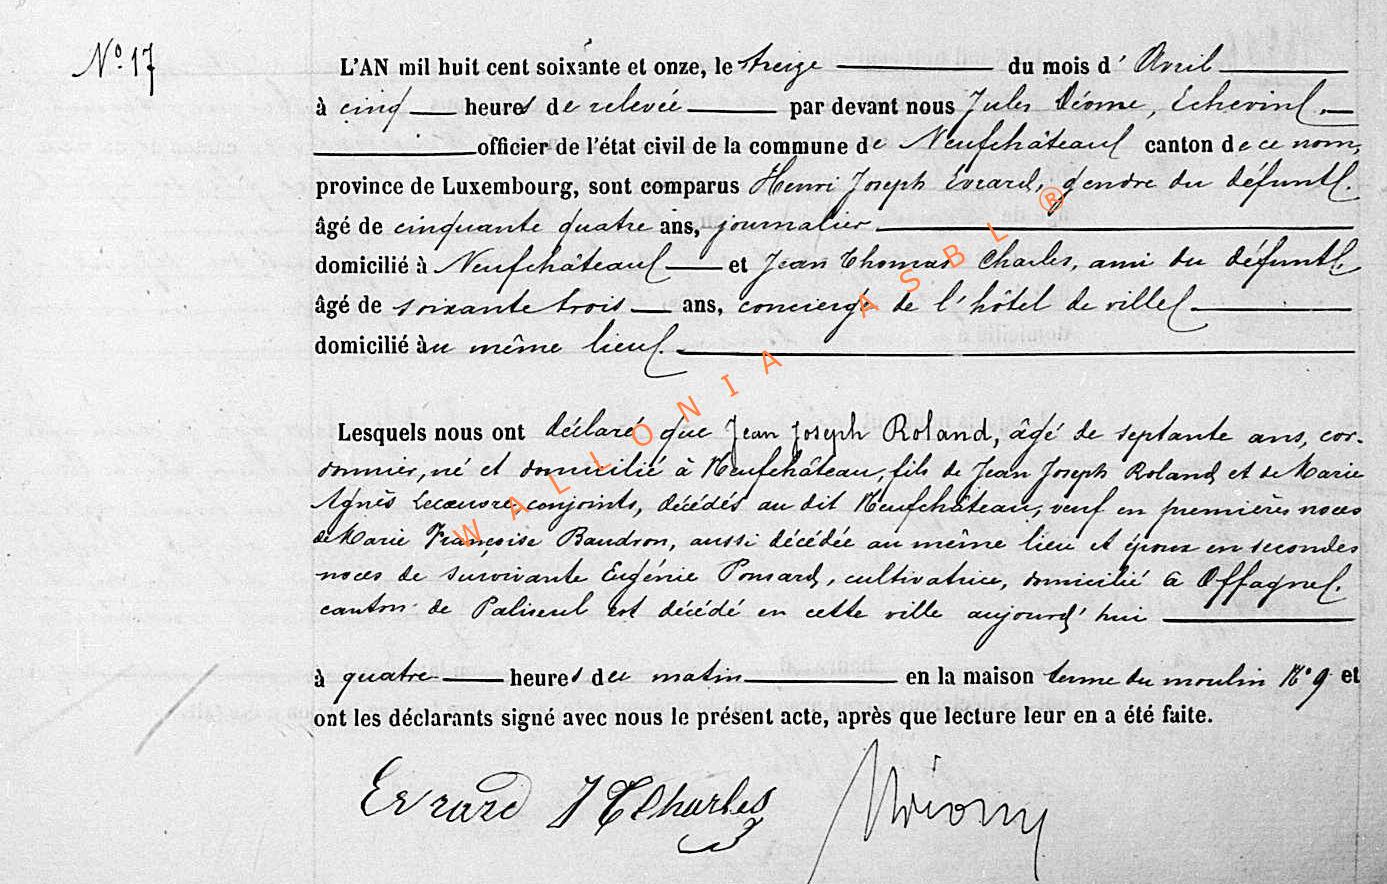 N° 17
L'AN mil huit cent soixante et onze, le treize du mois d' Avril
à cinq heures de relevée par devant nous Jules Déome, Echevin
officier de l'état civil de la commune de Neufchâteau canton de ce nom,
province de Luxembourg, sont comparus Henri Joseph Evrard, gendre du défunt
âgé de cinquante quatre ans, journalier
domicilié à Neufchâteau et Jean Thomas Charles, ami du défunt
âgé de soixante trois ans, concierge de l'hôtel de ville
domicilié au même lieu.
Lesquels nous ont déclaré que Jean Joseph Roland, âgé de septante ans, cor-
donnier, né et domicilié à Neufchâteau, fils de Jean Joseph Roland et de Marie
Agnès Lecoeuvre conjoints, décédés au dit Neufchâteau, veuf en premières noces
de Marie Françoise Baudron, aussi décédée au même lieu et époux en secondes
noces de survivante Eugénie Ponsard, cultivatrice, domicilié à Offagne,
canton de Paliseul est décédé en cette ville aujourd'hui
à quatre heures du matin en la maison terme du moulin N° 9 et
ont les déclarants signé avec nous le présent acte, après que lecture leur en a été faite.
Evrard J T Charles
WALLONIA ASBL ®